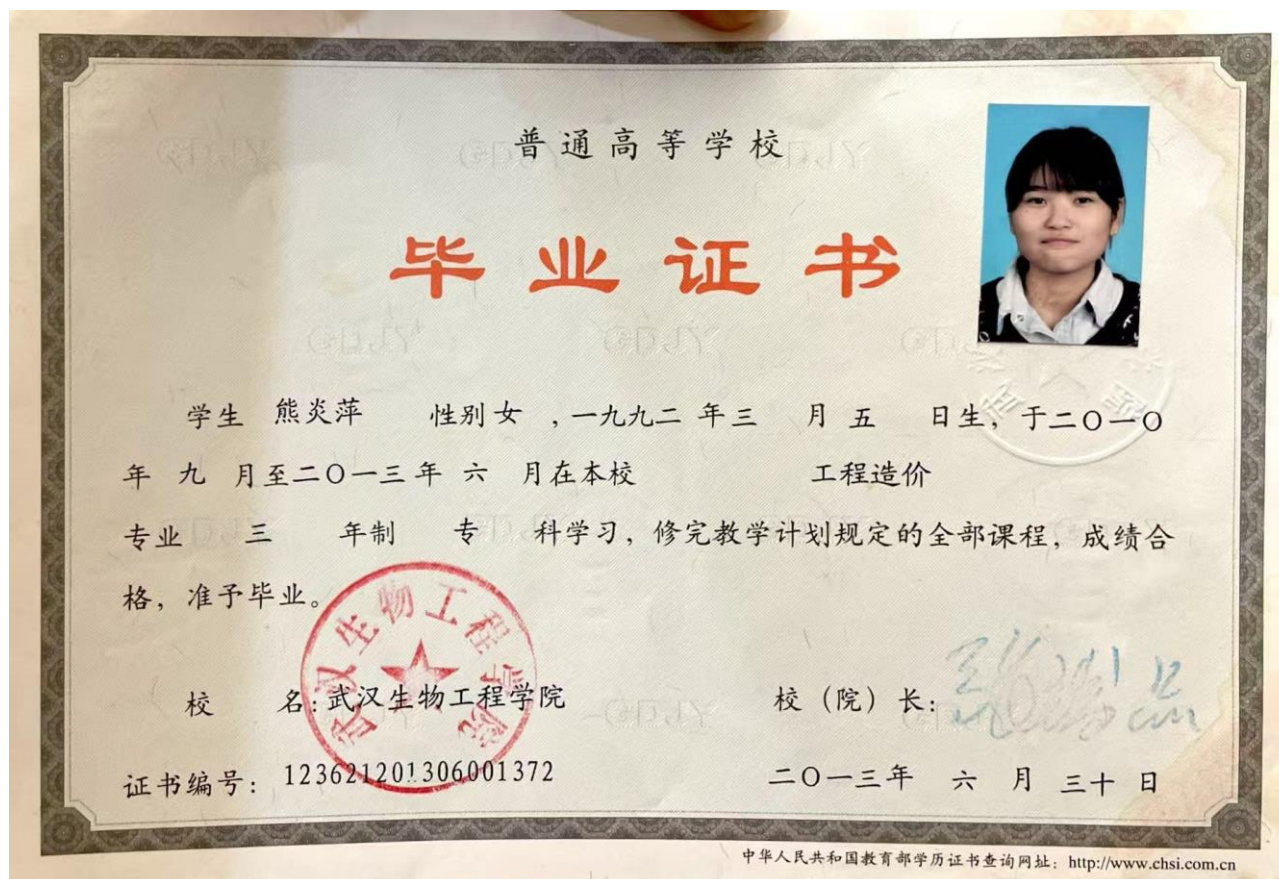 普通高等学校
毕业证书
学生 熊炎萍 性别 女 ,一九九二 年 三 月 五 日生, 于二〇一〇
年 九 月至二〇一三年 六 月在本校 工程造价
专业 三 年制 专 科学习, 修完教学计划规定的全部课程, 成绩合
格, 准予毕业。
武汉生物工程学院
校 名: 武汉生物工程学院 校(院)长:
证书编号: 123621201306001372 二〇一三年 六 月 三十 日
中华人民共和国教育部学历证书查询网址: http://www.chsi.com.cn